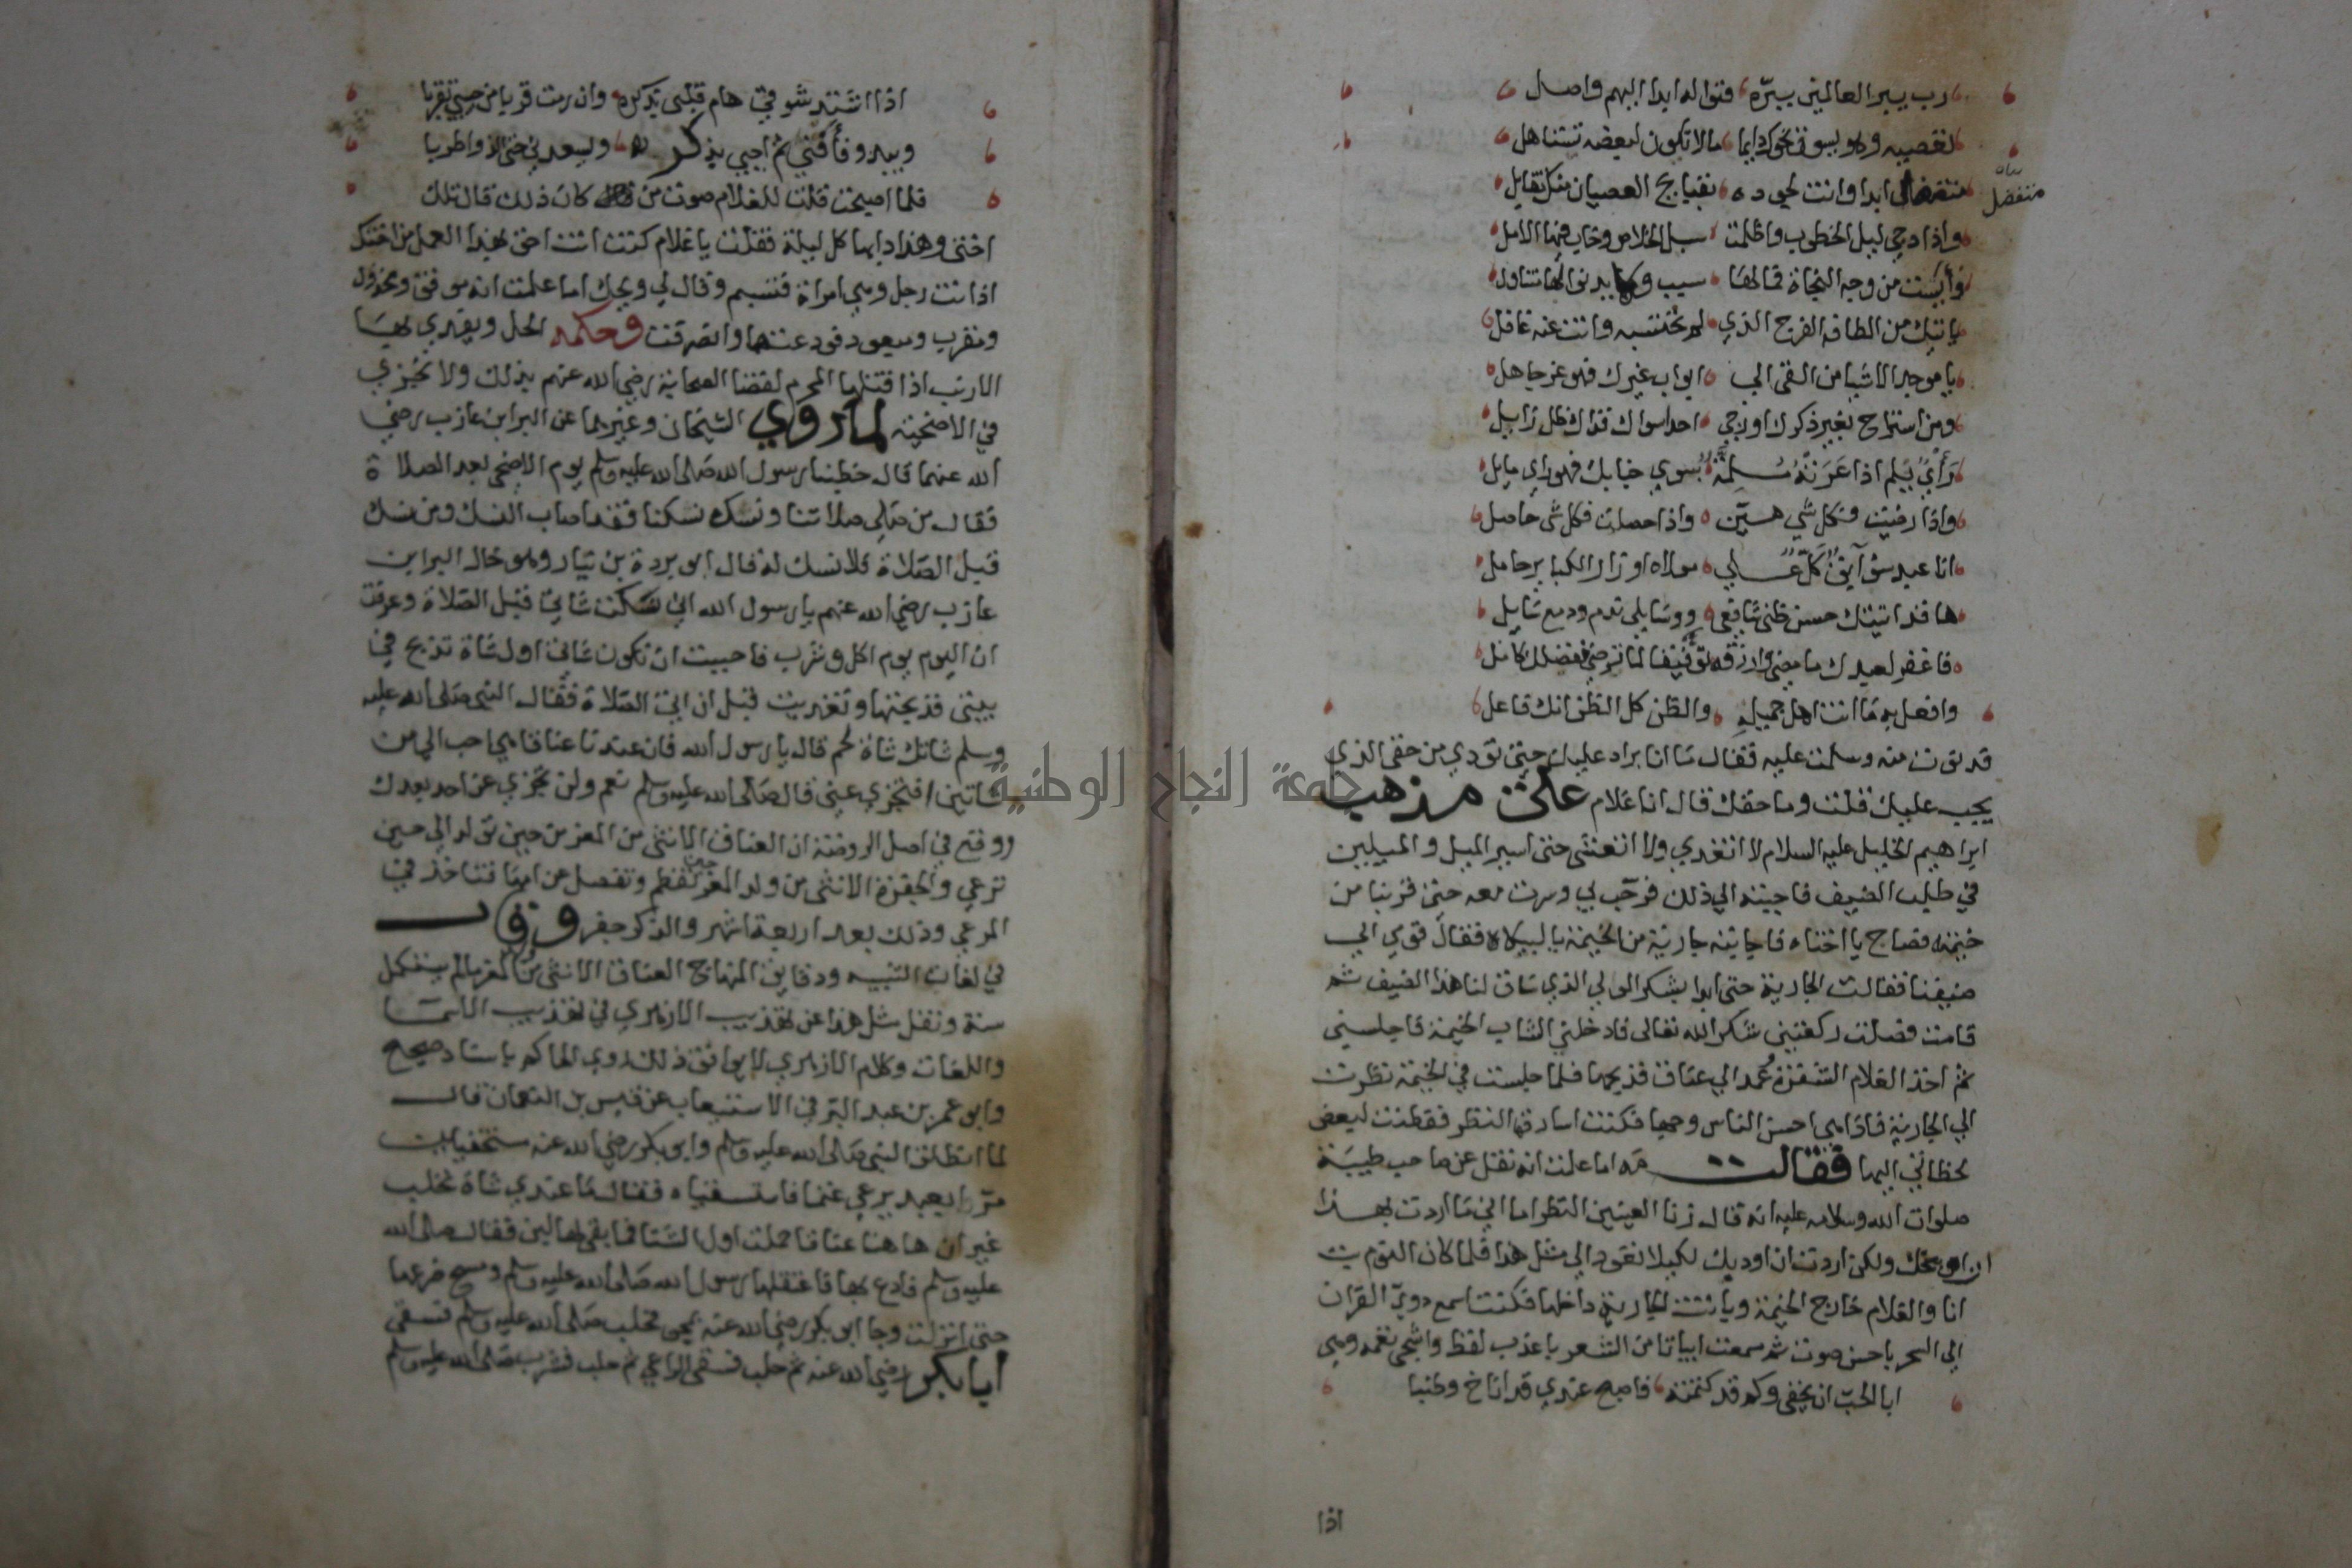 رب يبر العالمين ببره فنواله ابدا اليهم واصل
نعصيه وهو يسوق نحوك دايما مالا تكون لبعضه تستاهل
متفضل ابدا وانت لجوده بقبايح العصيان منك تقابل
متفضل
واذا دجي ليل الخطوب واظلمت سبل الخلاص وخاب فيها الامل
وأيست من وجه النجاة فما لها سبب ولا يدنو لها متناول
ياتيك من الطافه الفرج الذي لم تحتسبه وانت عنه غافل
يا موجد الاشيا من القى الي ابواب غيرك فهو غر جاهل
ومن استراح بغير ذكرك او رجي احدا سواك فذاك ظل زايل
رأي يلم اذا عرته ملمة بسوي جنابك فهو راي مايل
واذا رضيت فكل شي هين واذا حصلت فكل شي حاصل
انا عبد سوء آبق كل علي مولاه اوزار الكباير حامل
ها قد اتيتك حسن ظني شافعي ووسايلي ندم ودمع سايل
فاغفر لعبدك ما مضي وارزقه توفيقا لما ترضي ففضلك كامل
وافعل به ما انت اهل جميله والظن كل الظن انك فاعل
قدنوت منه وسلمت عليه فقال ما انا براد عليك حتي تودي من حقي الذي
يجب عليك قلت وما حقك قال انا غلام علي مذهب
ابراهيم الخليل عليه السلام لا اتغدي ولا اتعشي حتي اسير الميل والميلين
في طلب الضيف فاجبته الي ذلك فرحب بي وسرت معه حتي قربنا من
خيمته فصاح يا اختاه فاجابته جارية من الخيمة يا لبيكاه فقال قومي الي
ضيفنا فقالت الجارية حتي ابدا بشكر الولي الذي ساق لنا هذا الضيف ثم
قامت فصلت ركعتين شكر الله تعالى فادخلني الشاب الخيمة فاجلسني
ثم اخذ الغلام الشفرة وعمد الي عناق فذبحها فلما جلست في الخيمة نظرت
الي الجارية فاذا هي احسن الناس وجها فكنت اسارقها النظر ففطنت لبعض
لحظاتي اليها فقالت مه اما علمت انه نقل عن صاحب طيبة
صلوات الله وسلامه عليه انه قال زنا العينين النظر اما اني ما اردت بهذا
ان اوبخك ولكن اردت ان اودبك لكيلا تعود الي مثل هذا فلما كان النوم بت
انا والغلام خارج الخيمة وباتت الجارية داخلها فكنت اسمع دوي القران
الي السحر باحسن صوت ثم سمعت ابياتا من الشعر باعذب لفظ واشجي نغمه وهي
ابا الحب ان يخفي وكم قد كتمته فاصبح عندي قد اناخ وطنبا
اذا
اذا اشتد شوقي هام قلبي بذكره وان رمت قربا من حبيبي تقربا
ويبدو فأفني ثم احيي بذكره ويسعدني حتي الذ واطربا
فلما اصبحت قلت للغلام صوت من كان ذلك قال تلك
اختي وهذا دابها كل ليلة فقلت يا غلام كنت انت احق بهذا العمل من اختك
اذ انت رجل وهي امراة فتبسم وقال لي ويحك اما علمت انه موفق ومخذول
ومقرب ومبعود فودعتهما وانصرفت وحكمه الحل ويفدي بها
الارنب اذا قتلها المحرم لقضا الصحابة رضي الله عنهم بذلك ولا تجزي
في الاضحية لما روي الشيخان وغيرهما عن البرا بن عازب رضي
الله عنهما قال خطبنا رسول الله صلى الله عليه وسلم يوم الاضحي بعد الصلاة
فقال من صلي صلاتنا ونسك نسكنا فقد اصاب النسك ومن نسك
قبل الصلاة فلا نسك له فقال ابو بردة بن نيار وهو خال البرا بن
عازب رضي الله عنهم يا رسول الله اني نسكت شاتي قبل الصلاة وعرفت
ان اليوم يوم اكل وشرب فاحببت ان تكون شاتي اول شاة تذبح في
بيتي فذبحتها وتغديت قبل ان اتي الصلاة فقال النبي صلى الله عليه
وسلم شاتك شاة لحم قال يا رسول الله فان عندنا عناقا هي احب الي من
شاتين افتجزي عني قال صلى الله عليه وسلم نعم ولن تجزي عن احد بعدك
ووقع في اصل الروضة ان العناق الانثي من المعز من حين تولد الي حين
ترعي والجفرة الانثي من ولد المعز حين تفطم وتفصل عن امها فتاخذ في
المرعي وذلك بعد اربعة اشهر والذكر جفر وقال
في لغات التنبيه ودقايق المنهاج العناق الانثي من المعز ما لم يستكمل
سنة ونقل مثل هذا عن تهذيب الازهري في تهذيب الاسما
واللغات وكلام الازهري لا يوافق ذلك روي الحاكم باسناد صحيح
وابو عمر بن عبد البر في الاستيعاب عن قيس بن النعمان قال
لما انطلق النبي صلى الله عليه وسلم وابو بكر رضي الله عنه مستخفيان
مرا بعبد يرعي غنما فاستسقياه فقال ما عندي شاة تحلب
غير ان هاهنا عناقا حملت اول الشتا فما بقي لها لبن فقال صلى الله
عليه وسلم فادع بها فاعتقلها رسول الله صلى الله عليه وسلم ومسح ضرعها
حتي انزلت وجا ابو بكر رضي الله عنه بمجن فحلب صلى الله عليه وسلم فسقي
ابا بكر رضي الله عنه ثم حلب فسقى الراعي ثم حلب فشرب صلى الله عليه وسلم
جامعة النجاح الوطنية